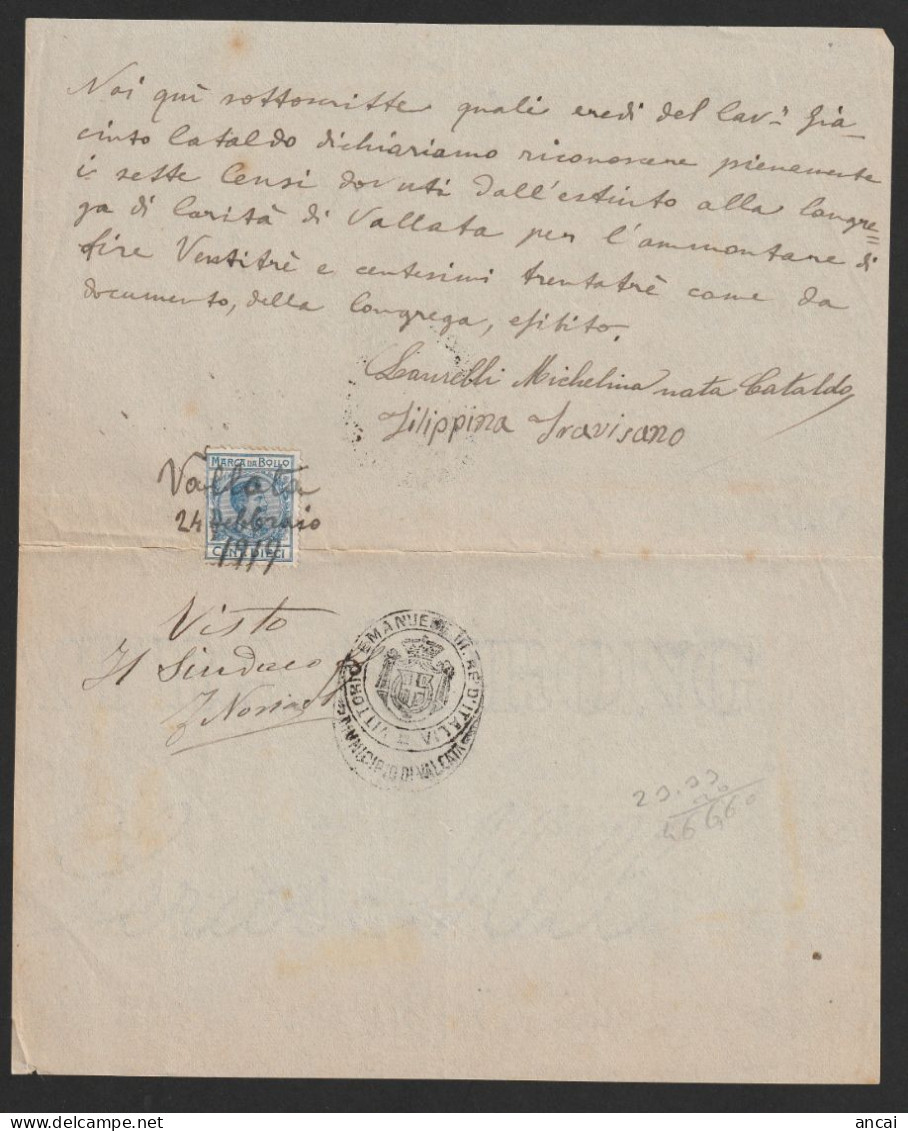 Noi quì sottoscritte quali eredi del Cav.r Gia-
cinto Cataldo dichiariamo riconoscere pienamente
i sette Censi dovuti dall'estinto alla Congre=
ga di Carità di Vallata per l'ammontare di
lire Ventitrè e centesimi trentatrè come da
documento, della Congrega, esibito.
Laurelli Michelina nata Cataldo
Filippina Travisano
MARCA DA BOLLO
Vallata
24 Febbraio
1919
CENT. DIECI
Visto
Il Sindaco
VITTORIO EMANUELE III. RE D'ITALIA
MUNICIPIO DI VALLATA
ancai